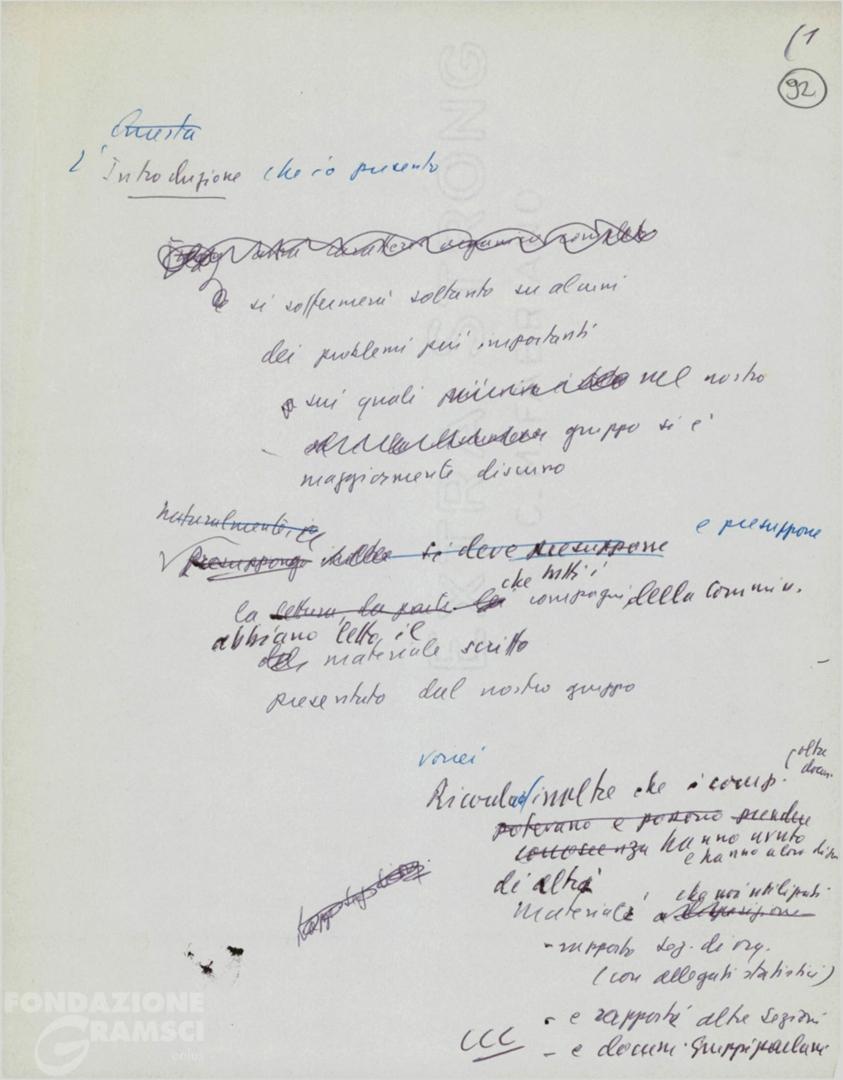 (1
92
Questa
L'Introduzione che io presento
si soffermerà soltanto su alcuni
dei problemi più importanti
sui quali nel nostro
gruppo si è
maggiormente discusso
naturalmente
Presuppongo si deve presupporre e presuppone
che tutti i
la lettura da parte compagni della Commiss.
abbiano letto il
materiale scritto
presentato dal nostro gruppo
vorrei
(oltre
docum.
Ricordare inoltre che i comp.
potevano e possono prendere
conoscenza hanno avuto
e hanno a loro disp.
di altri
che noi utilizzati
materiali a disposizione
- rapporto sez. di org.
(con allegati statistici)
- e rapporti altre sezioni
CCC - e docum. Gruppi parlam.
EXTRA STRONG
FONDAZIONE
GRAMSCI
onlus